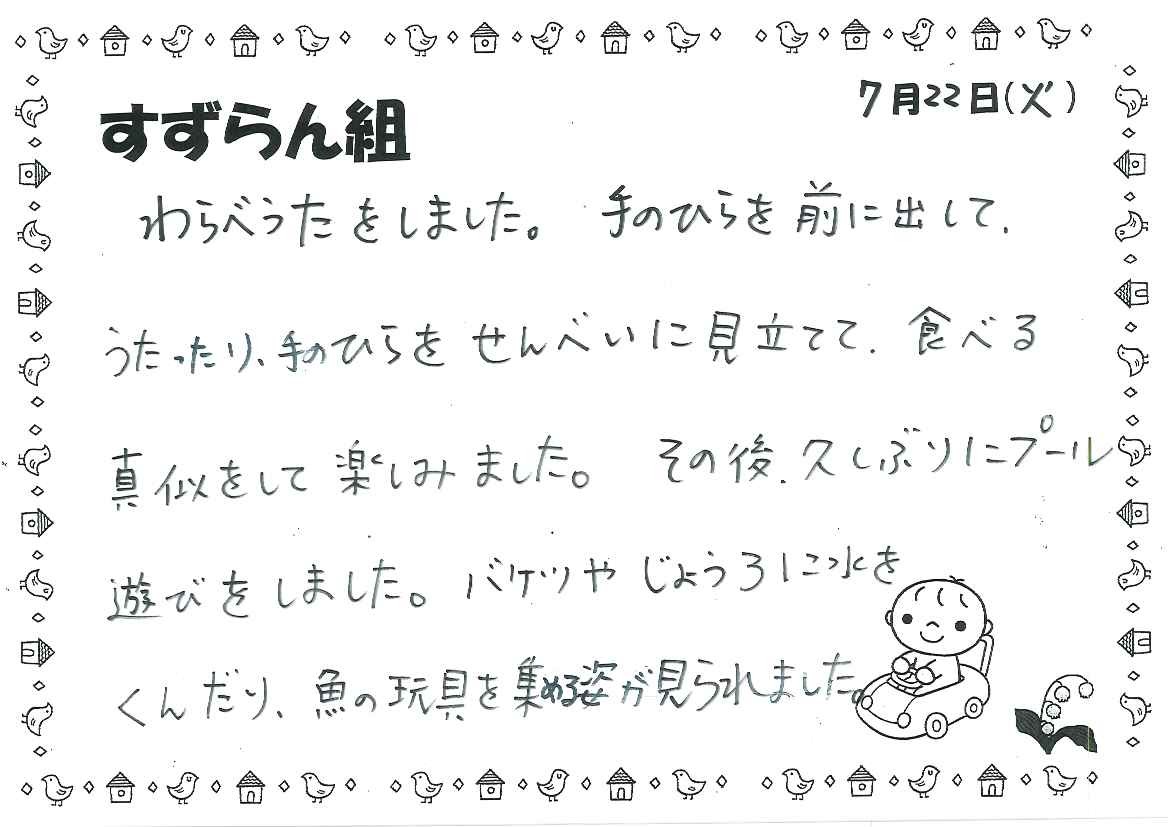 7月22日(火)
すずらん組
わらべうたをしました。 手のひらを前に出して、
うたったり、手のひらを せんべいに見立てて、食べる
真似をして楽しみました。 その後、久しぶりにプール
遊びをしました。バケツや じょうろに水を
くんだり、魚の玩具を集める姿が見られました。